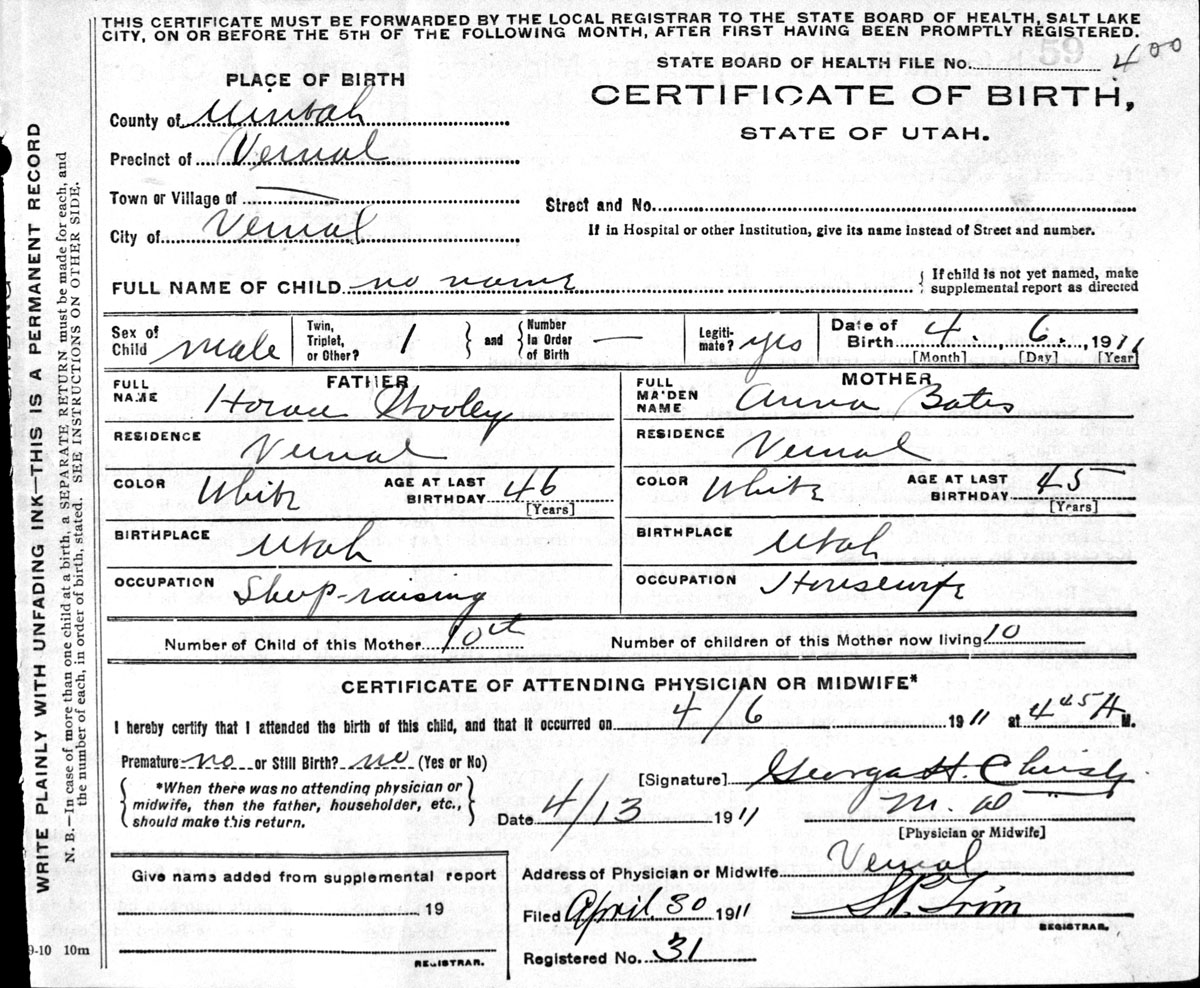 THIS CERTIFICATE MUST BE FORWARDED BY THE LOCAL REGISTRAR TO THE STATE BOARD OF HEALTH, SALT LAKE
CITY, ON OR BEFORE THE 5TH OF THE FOLLOWING MONTH, AFTER FIRST HAVING BEEN PROMPTLY REGISTERED.
STATE BOARD OF HEALTH FILE No. 59 400
PLACE OF BIRTH
CERTIFICATE OF BIRTH,
STATE OF UTAH.
County of Uintah
Precinct of Vernal
Town or Village of —
Street and No.
City of Vernal
If in Hospital or other Institution, give its name instead of Street and number.
FULL NAME OF CHILD no name { If child is not yet named, make
supplemental report as directed
Sex of Child male Twin, Triplet, or Other? 1 } and { Number In Order of Birth — Legiti-mate? yes Date of Birth 4. 6. 1911
[Month] [Day] [Year]
FATHER MOTHER
FULL NAME Horace Wooley FULL MAIDEN NAME Anna Bates
RESIDENCE Vernal RESIDENCE Vernal
COLOR White AGE AT LAST BIRTHDAY 46 [Years] COLOR White AGE AT LAST BIRTHDAY 45 [Years]
BIRTHPLACE Utah BIRTHPLACE Utah
OCCUPATION Sheep-raising OCCUPATION Housewife
Number of Child of this Mother 10th Number of children of this Mother now living 10
CERTIFICATE OF ATTENDING PHYSICIAN OR MIDWIFE*
I hereby certify that I attended the birth of this child, and that it occurred on 4/6 1911 at 4 45 A M.
Premature no or Still Birth? no (Yes or No)
{ *When there was no attending physician or
midwife, then the father, householder, etc.,
should make this return. }
[Signature] George H. Christy
Date 4/13 1911 M. D
[Physician or Midwife]
Give name added from supplemental report
19
REGISTRAR.
Address of Physician or Midwife Vernal
Filed April 30 1911 Trim
REGISTRAR.
Registered No. 31
9-10 10m
WRITE PLAINLY WITH UNFADING INK—THIS IS A PERMANENT RECORD
N. B.—In case of more than one child at a birth, a SEPARATE RETURN must be made for each, and
the number of each, in order of birth, stated. SEE INSTRUCTIONS ON OTHER SIDE.